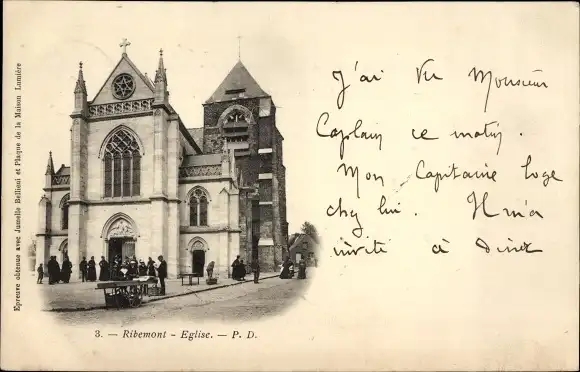 Epreuve obtenue avec Jumelle Bellieni et Plaque de la Maison Lumière
J'ai Vu Monsieur
Caplain ce matin.
Mon Capitaine loge
chez lui. Il m'a
invité à dîner
3. — Ribemont - Eglise. — P. D.